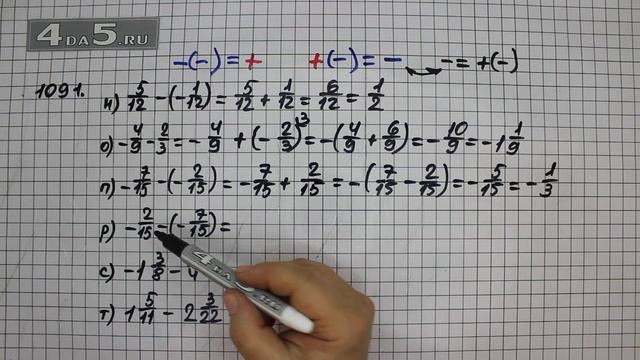 4DA5.RU
-(-)=+ +(-)=- -=+(-)
1091.
н) 5/12 - (-1/12) = 5/12 + 1/12 = 6/12 = 1/2
о) -4/9 - 2/3 = -4/9 + (-2/3)^3 = -(4/9 + 6/9) = -10/9 = -1 1/9
п) -7/15 - (-2/15) = -7/15 + 2/15 = -(7/15 - 2/15) = -5/15 = -1/3
р) -2/15 - (-7/15) =
с) -1 3/8 - 4
т) 1 5/11 - 2 3/22